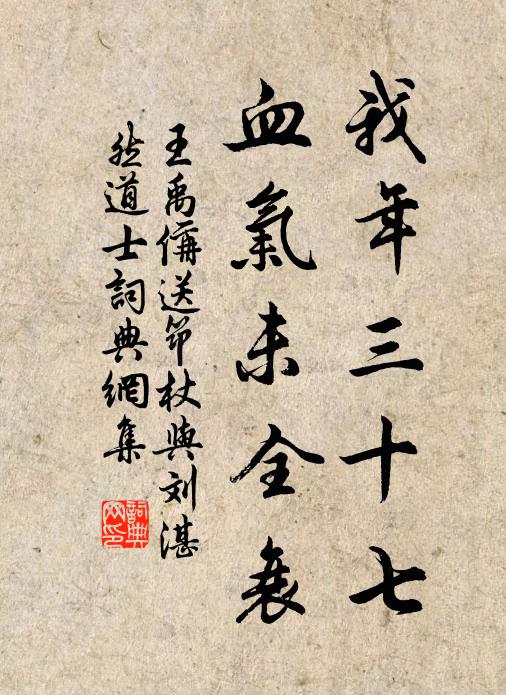 我年三十七
血氣未全衰
王禹偁送筇杖與刘湛
然道士詞典網集
詞典网印